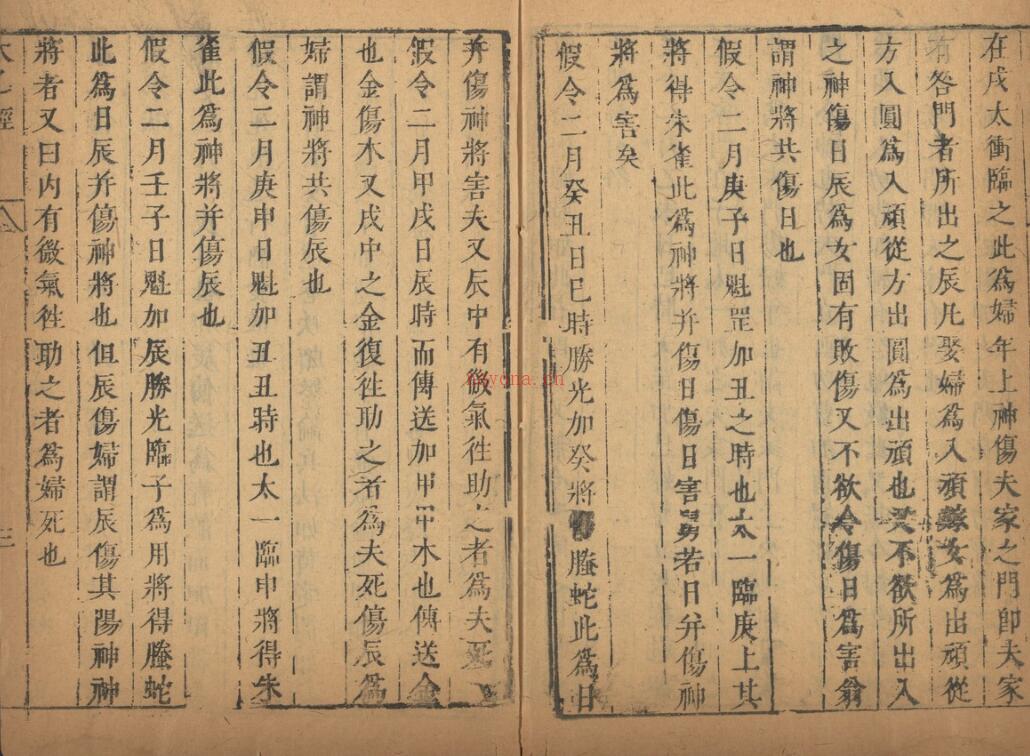 在戌太衝臨之此爲婦年上神傷夫家之門卽夫家
有咎門者所出之辰凡娶婦爲入頑嫁女爲出頑從
方入圓爲入頑從方出圓爲出頑也又不欲所出入
之神傷日辰爲女固有敗傷又不欲令傷日爲害翁
謂神將共傷日也
假令二月庚子日魁罡加丑之時也太一臨庚上其
將得朱雀此爲神將并傷日傷日害舅若日并傷神
將爲害矣
假令二月癸丑日巳時勝光加癸將螣蛇此爲日
并傷神將害夫又辰中有微氣徃助之者爲夫死
假令二月甲戌日辰時而傳送加甲甲木也傳送金
也金傷木又戌中之金復徃助之者爲夫死傷辰爲
婦謂神將共傷辰也
假令二月庚申日魁加丑丑時也太一臨申將得朱
雀此爲神將并傷辰也
假令二月壬子日魁加辰勝光臨子爲用將得螣蛇
此爲日辰并傷神將也但辰傷婦謂辰傷其陽神神
將者又曰内有微氣徃助之者爲婦死也
六壬經
八
三
rayona.cn